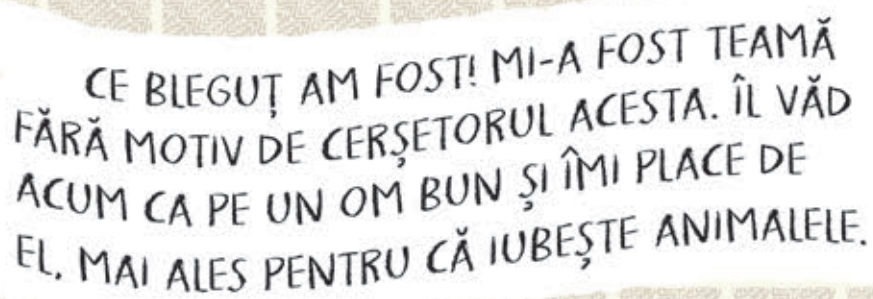 CE BLEGUȚ AM FOST! MI-A FOST TEAMĂ
FĂRĂ MOTIV DE CERȘETORUL ACESTA. ÎL VĂD
ACUM CA PE UN OM BUN ȘI ÎMI PLACE DE
EL. MAI ALES PENTRU CĂ IUBEȘTE ANIMALELE.